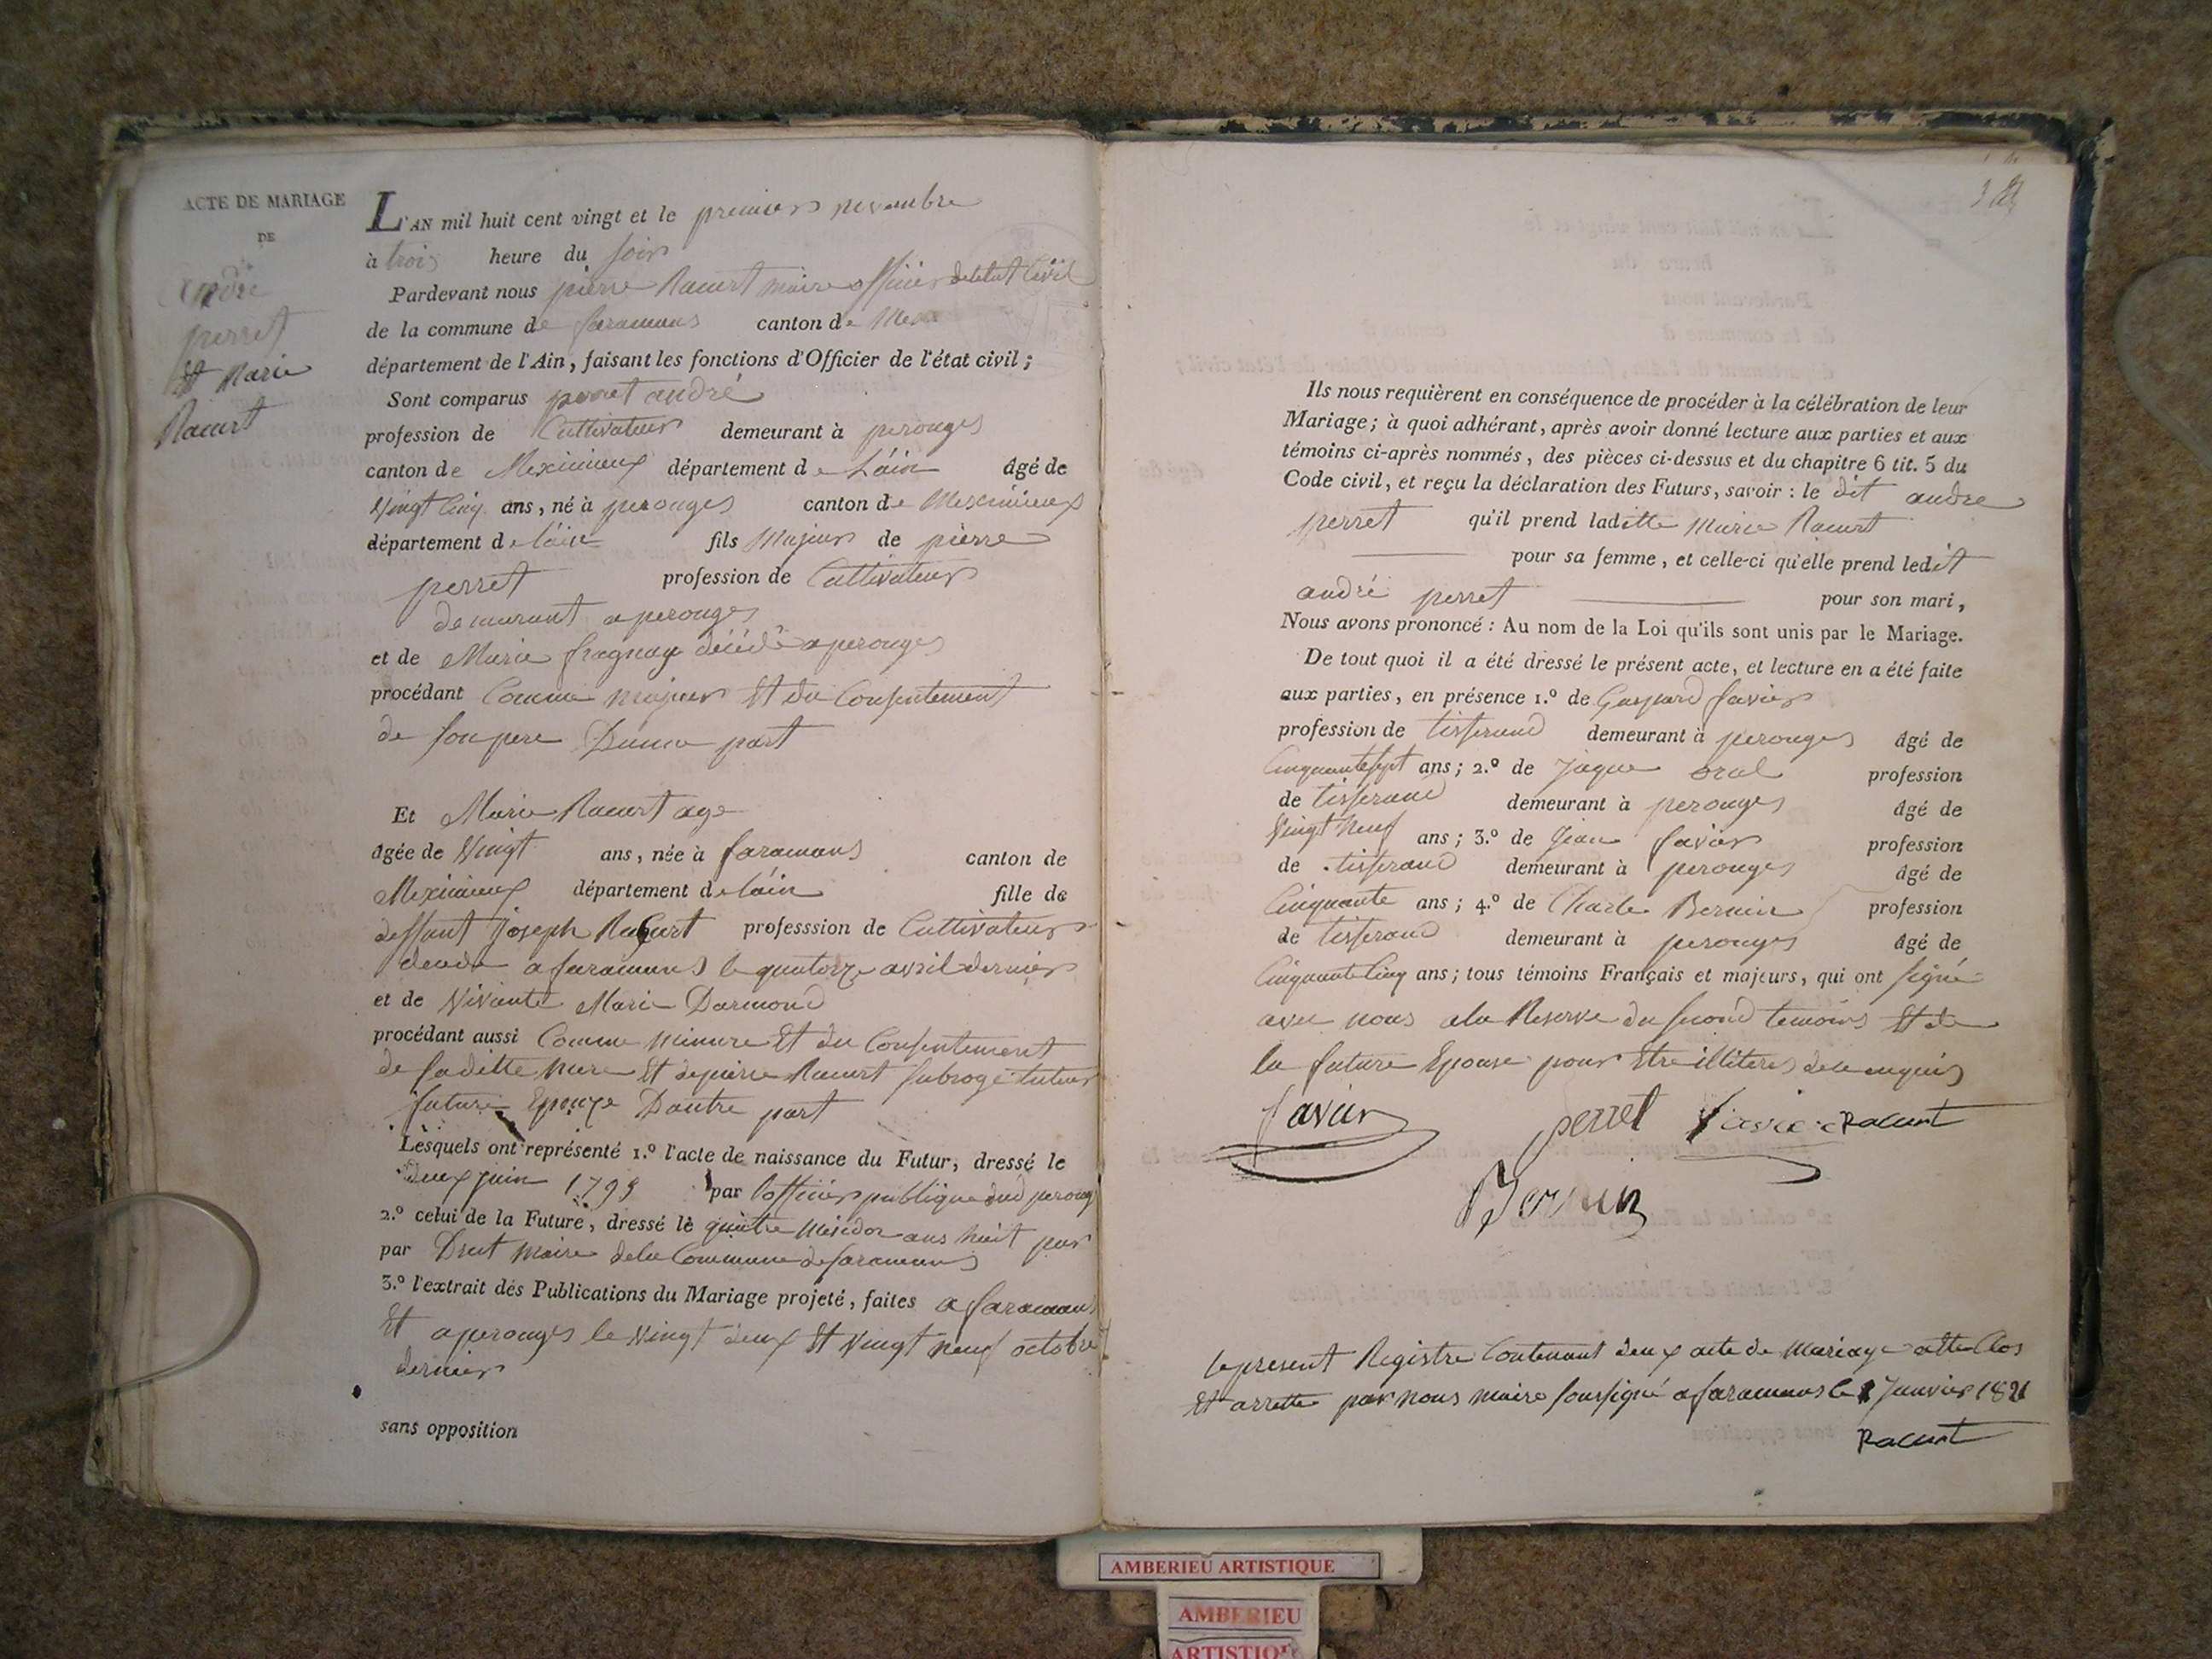 ACTE DE MARIAGE
DE
André
perret
Et Marie
Racurt
L'AN mil huit cent vingt et le premier novembre
à trois heure du soir
Pardevant nous pierre Racurt maire officier deletat Civil
de la commune de faramans canton de Mex
département de l'Ain, faisant les fonctions d'Officier de l'état civil;
Sont comparus perret andré
profession de Cultivateur demeurant à perouges
canton de Meximieux département de Láin âgé de
Vingt Cinq ans, né à perouges canton de Meximieux
département de láin fils Majeur de pierre
perret profession de Cultivateur
demurant a perouges
et de Marie fragnay décédé a perouges
procédant Comme majeur Et du Consentement
de son pere Dunne part
Et Marie Racurt age
âgée de Vingt ans, née à faramans canton de
Meximieux département de láin fille de
deffunt Joseph Racurt professsion de Cultivateur
décédé a faramans le quatorze avril dernier
et de Vivante Marie Darmond
procédant aussi Comme mineure Et du Consentement
de saditte mere Et de pierre Racurt subrogé tuteur
future Epouze Dautre part
Lesquels ont représenté 1.º l'acte de naissance du Futur, dressé le
deux juin 1795 par lofficier publique dud perouges
2.º celui de la Future, dressé le quatre Mesidor ans huit par
par Drut Maire dela Commune de faramans
3.º l'extrait des Publications du Mariage projeté, faites a faramans
Et a perouges le Vingt deux Et Vingt neuf octobre
dernier
sans opposition
Ils nous requièrent en conséquence de procéder à la célébration de leur
Mariage; à quoi adhérant, après avoir donné lecture aux parties et aux
témoins ci-après nommés, des pièces ci-dessus et du chapitre 6 tit. 5 du
Code civil, et reçu la déclaration des Futurs, savoir : le dit andre
perret qu'il prend laditte Marie Racurt
pour sa femme, et celle-ci qu'elle prend ledit
andré perret pour son mari,
Nous avons prononcé : Au nom de la Loi qu'ils sont unis par le Mariage.
De tout quoi il a été dressé le présent acte, et lecture en a été faite
aux parties, en présence 1.º de Gaspard favier
profession de tisserand demeurant à perouges âgé de
Cinquantesept ans; 2.º de Jaque oral profession
de tisserand demeurant à perouges âgé de
Vingt Neuf ans; 3.º de Jean favier profession
de tisserand demeurant à perouges âgé de
Cinquante ans; 4.º de Charle Bernin profession
de tisserand demeurant à perouges âgé de
Cinquante Cinq ans; tous témoins Français et majeurs, qui ont signé
avec nous ala Reserve du second temoins Et de
la future Epouse pour Etre illiteres de ce enquis
favier perret favier Racurt
Bernin
le present Registre Contenant deux acte de Mariage atte Clos
Et arretté par nous maire soussigné a faramans le 1 Janvier 1821
Racurt
AMBERIEU ARTISTIQUE
AMBERIEU
ARTISTIQ